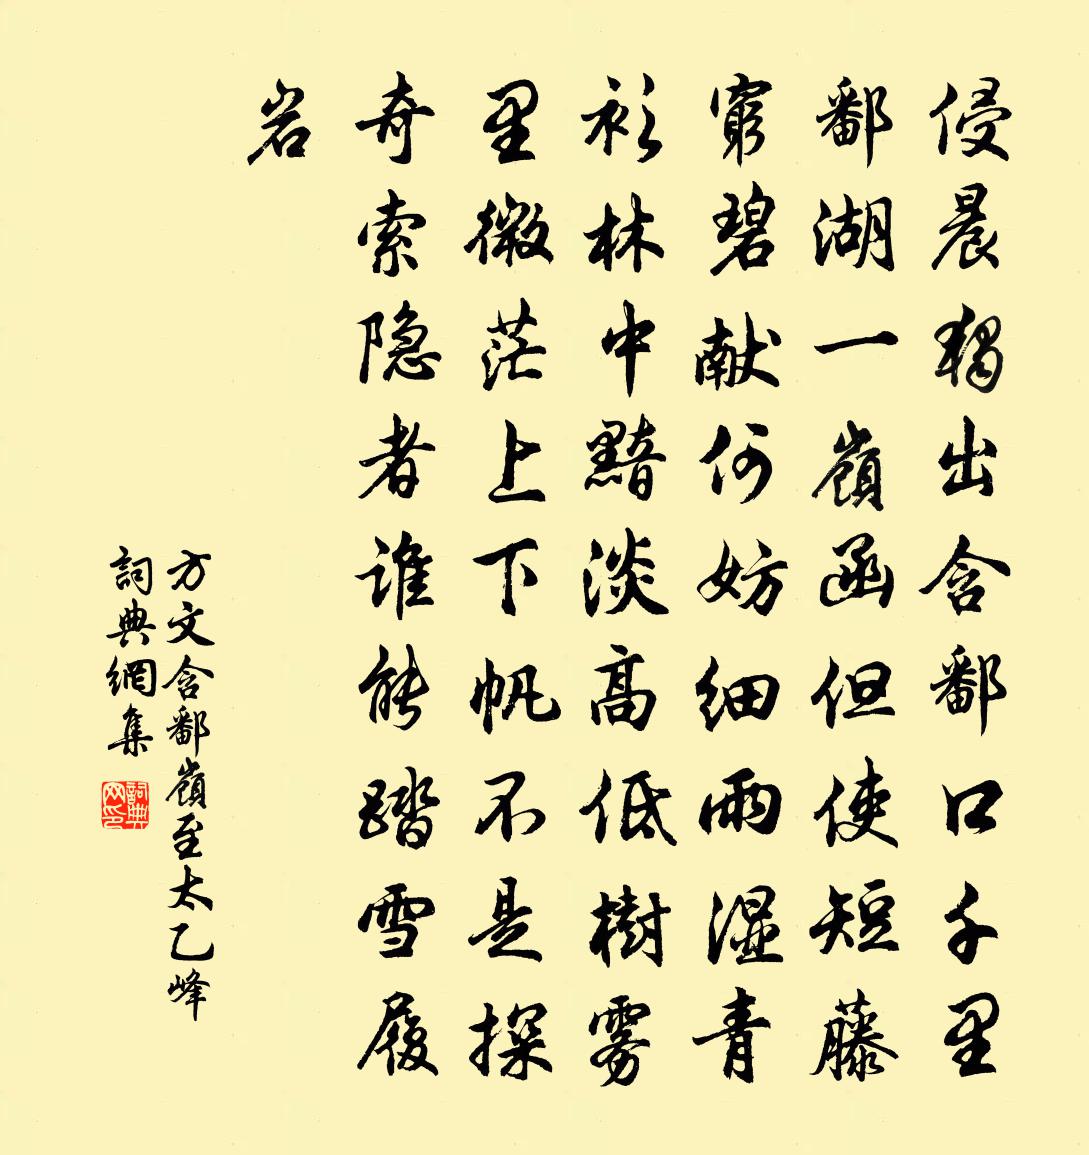 侵晨獨出含鄱口千里
鄱湖一嶺函但使短藤
窮碧献何妨細雨湿青
衫林中黯淡高低樹雾
里微茫上下帆不是探
奇索隐者谁能踏雪履
岩
方文含鄱嶺至太乙峰
詞典網集
詞典
网印